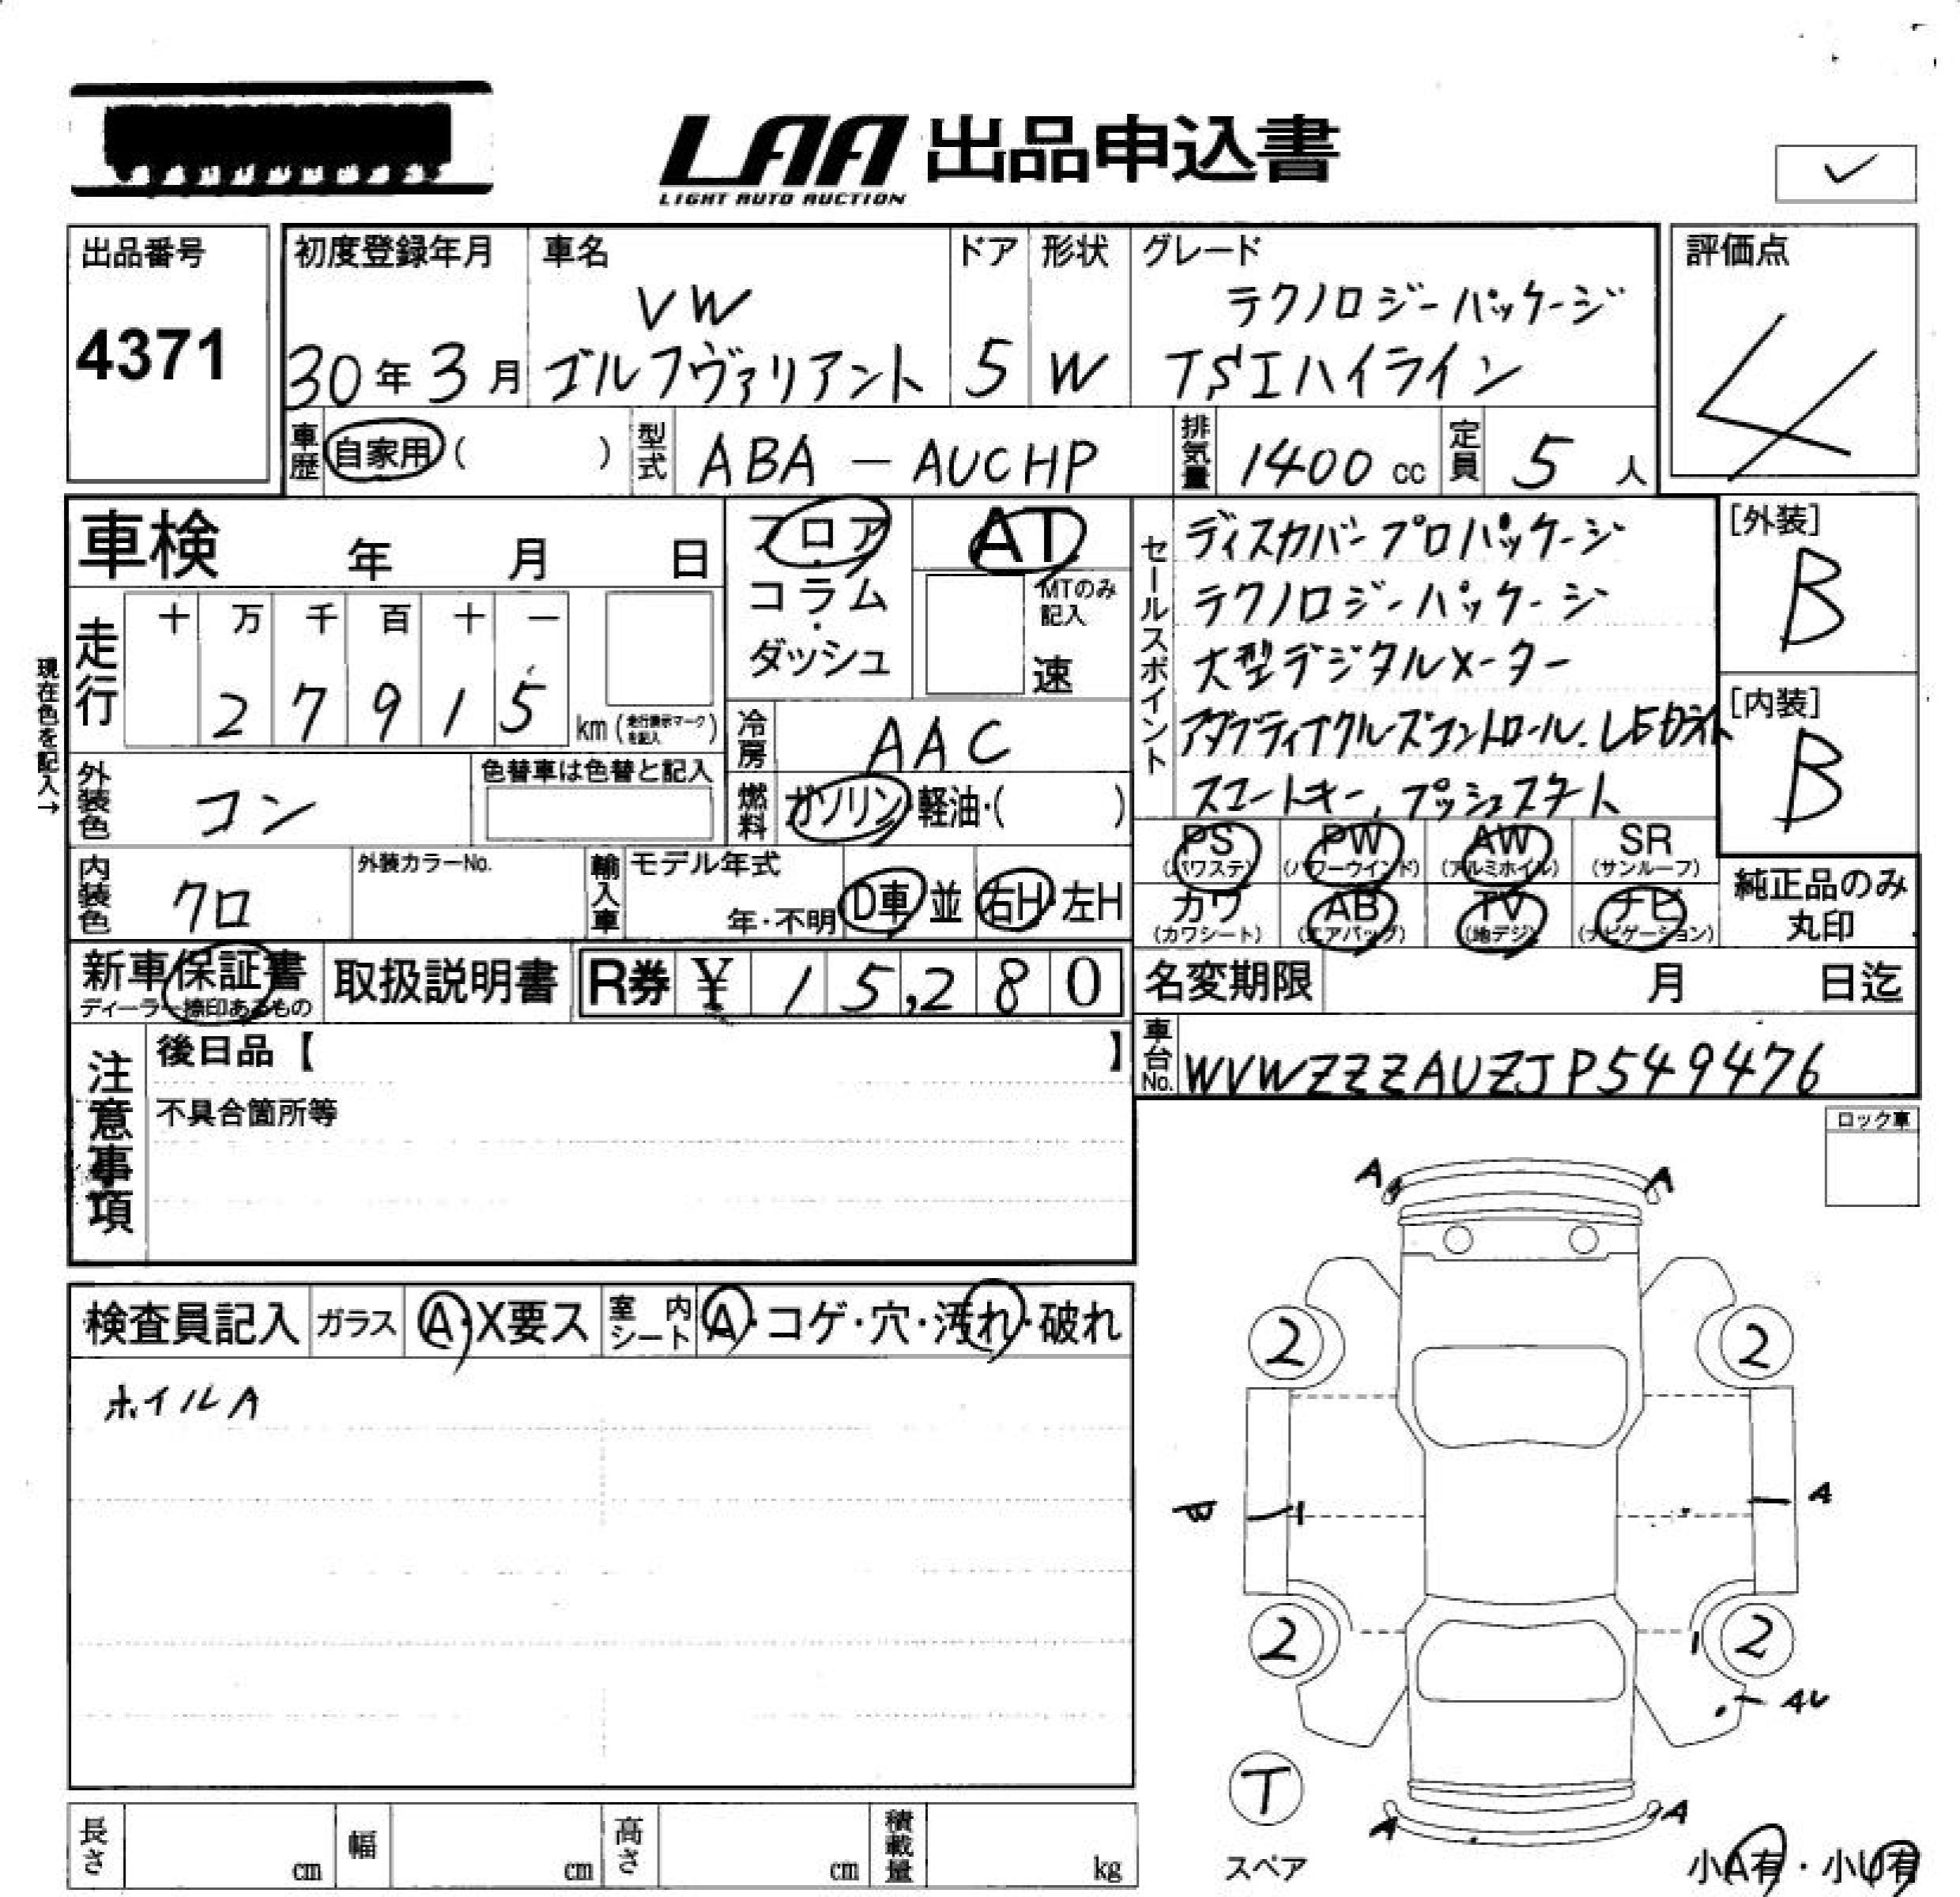 LAA 出品申込書
LIGHT AUTO AUCTION
出品番号
4371
初度登録年月
30年3月
車名
VW
ゴルフヴァリアント
ドア
5
形状
W
グレード
テクノロジーパッケージ
TSIハイライン
評価点
4
車歴 自家用 ( )
型式 ABA - AUCHP
排気量 1400 cc
定員 5 人
車検 年 月 日
フロア・コラム・ダッシュ
AT
MTのみ記入
速
走行
十 万 千 百 十 一
2 7 9 1 5
km (走行表示マークを記入)
現在色を記入→
冷房 AAC
外装色 コン
色替車は色替と記入
燃料 ガソリン・軽油・( )
セールスポイント
ディスカバープロパッケージ
テクノロジーパッケージ
大型デジタルメーター
アダプティブクルーズコントロール、LEDライト
スマートキー、プッシュスタート
[外装]
B
[内装]
B
内装色 クロ
外装カラーNo.
輸入車
モデル年式
年・不明
D車・並
右H・左H
PS (パワステ)
PW (パワーウインド)
AW (アルミホイル)
SR (サンルーフ)
カワ (カワシート)
AB (エアバッグ)
TV (地デジ)
ナビ (ナビゲーション)
純正品のみ
丸印
新車保証書
ディーラー捺印あるもの
取扱説明書
R券 ¥ 15,280
名変期限 月 日迄
車台No. WVWZZZAUZJP549476
注意事項
後日品【 】
不具合箇所等
ロック車
検査員記入
ガラス A・X要ス
室内シート A・コゲ・穴・汚れ・破れ
ホイルA
A
A
2
2
A
2
2
A
A
T
スペア
小A有・小U有
長さ cm
幅 cm
高さ cm
積載量 kg